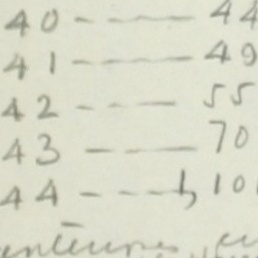 40 ----- 44
41 ----- 49
42 ----- 55
43 ----- 70
44 ----- 1,10